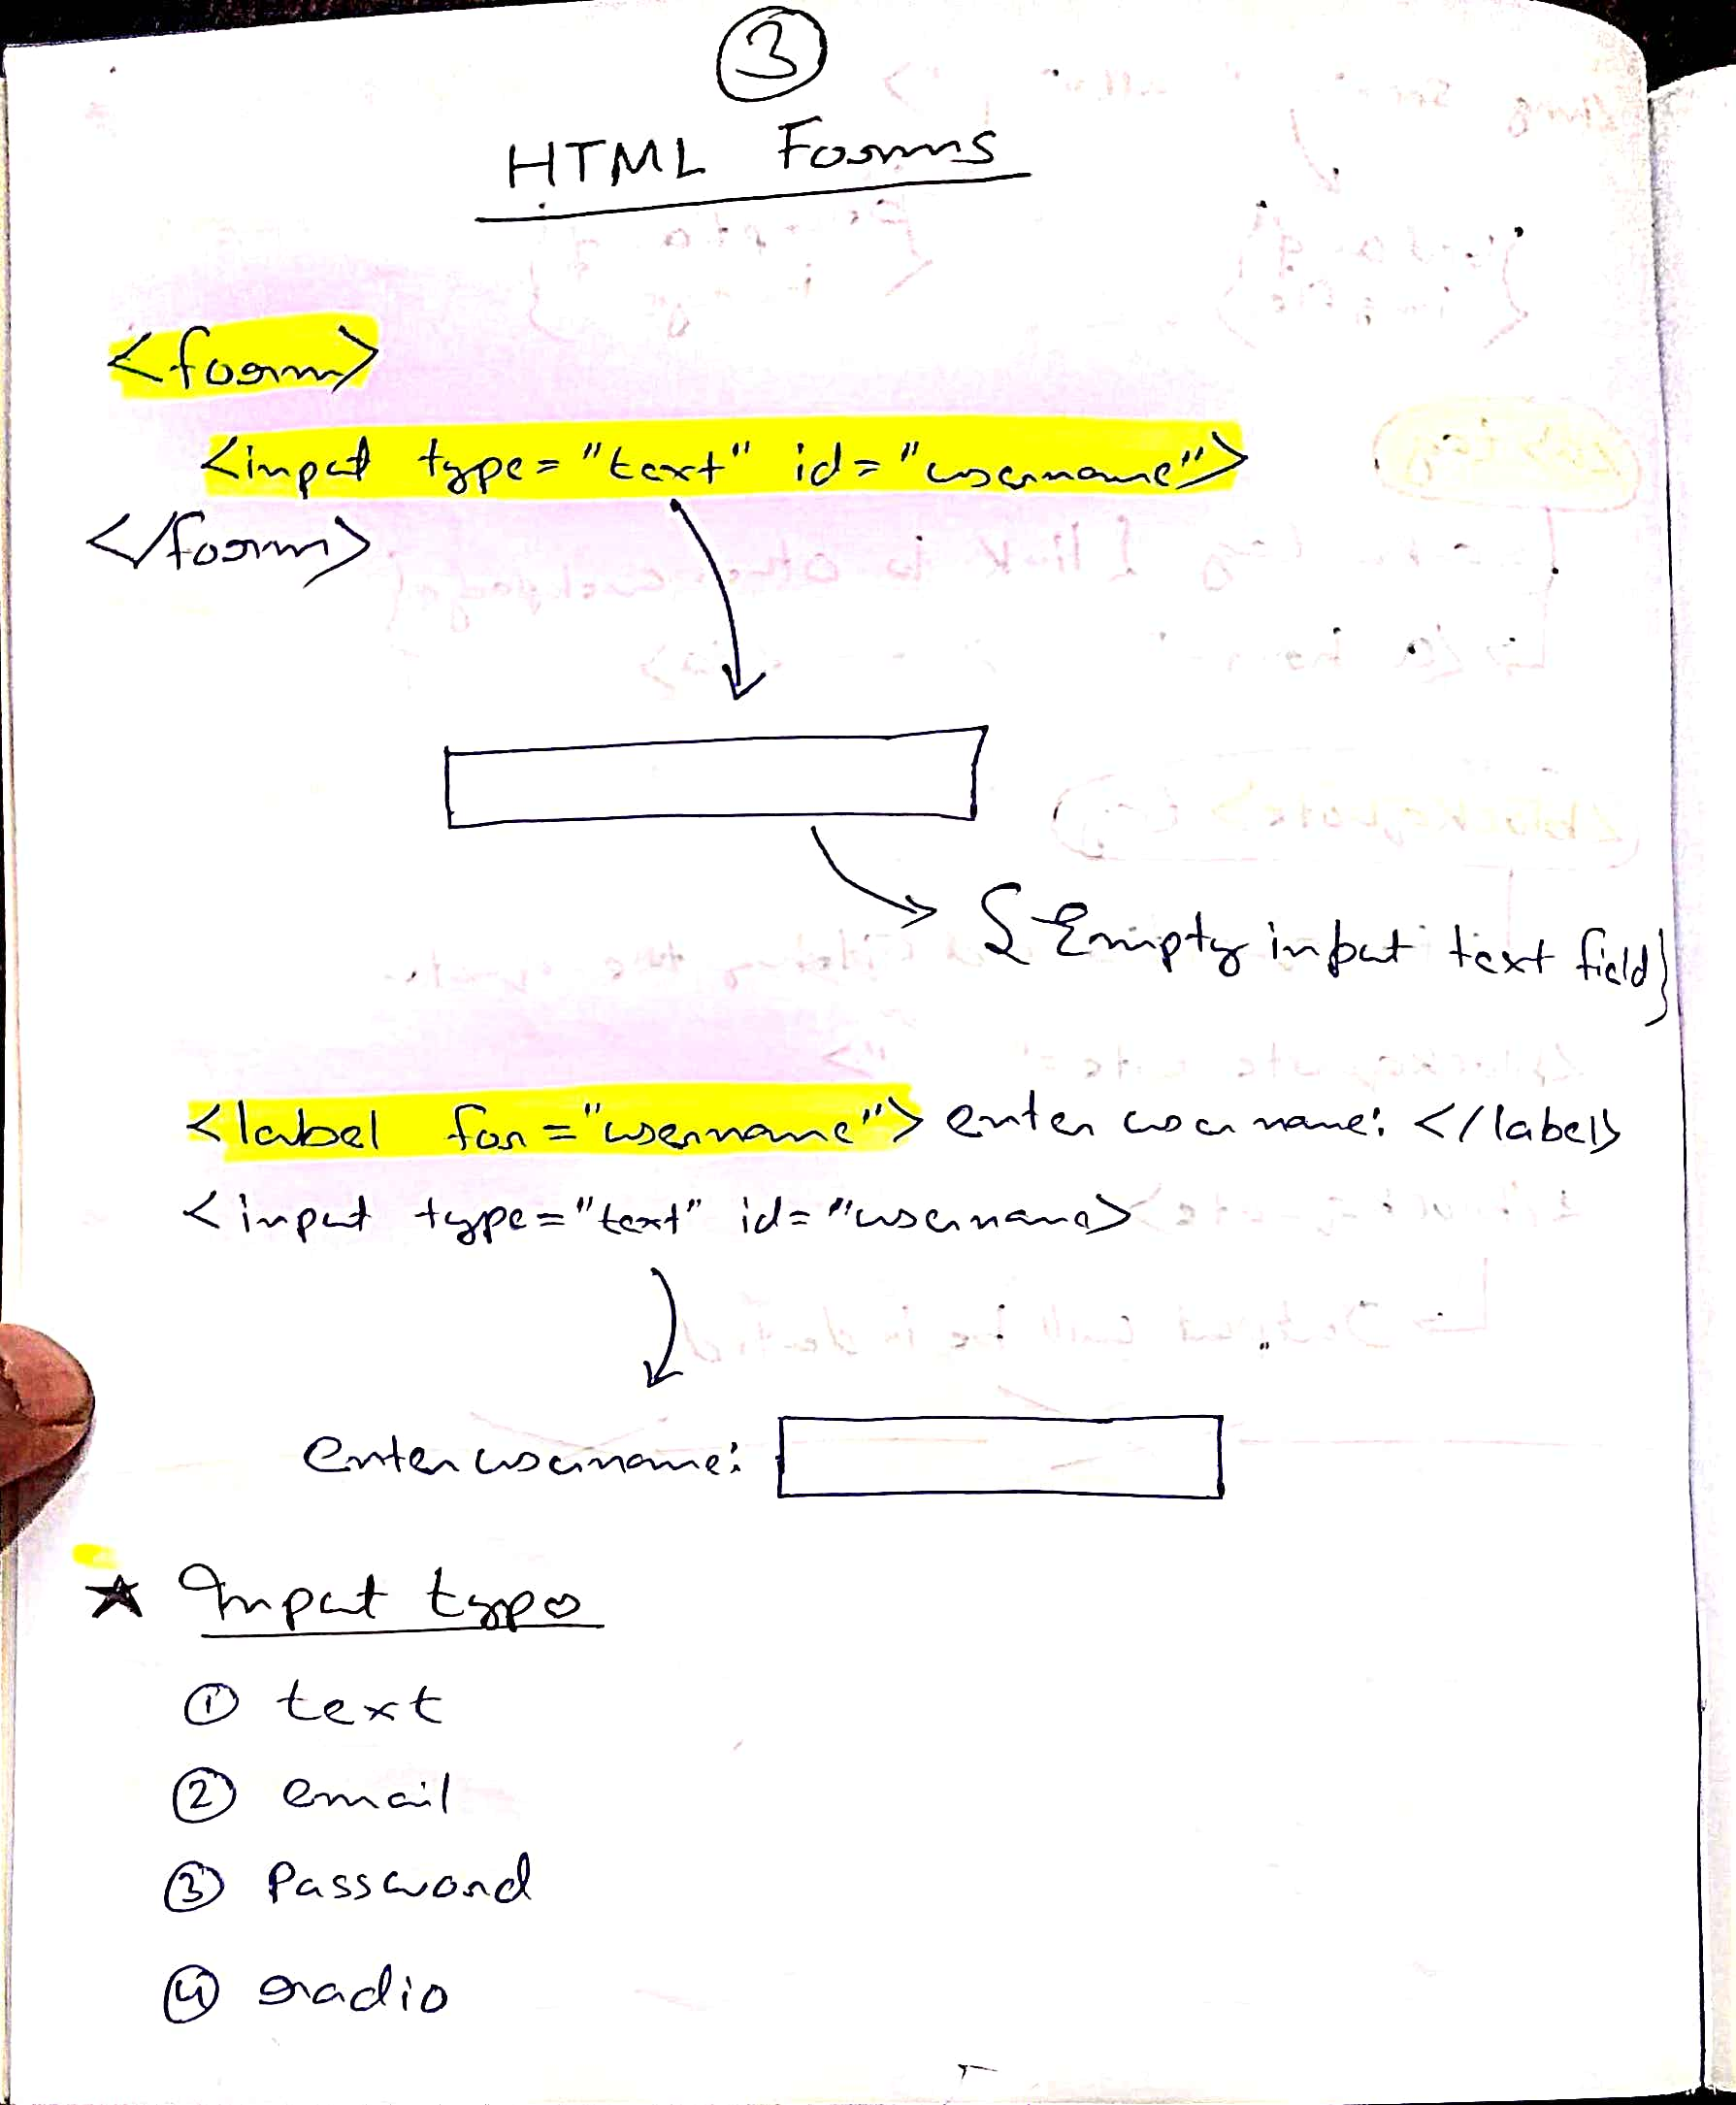 3
HTML Forms
<form>
<input type="text" id="username">
</form>
{Empty input text field}
<label for="username"> enter username: </label>
<input type="text" id="username>
enter username:
★ Input type
① text
② email
③ Password
④ radio